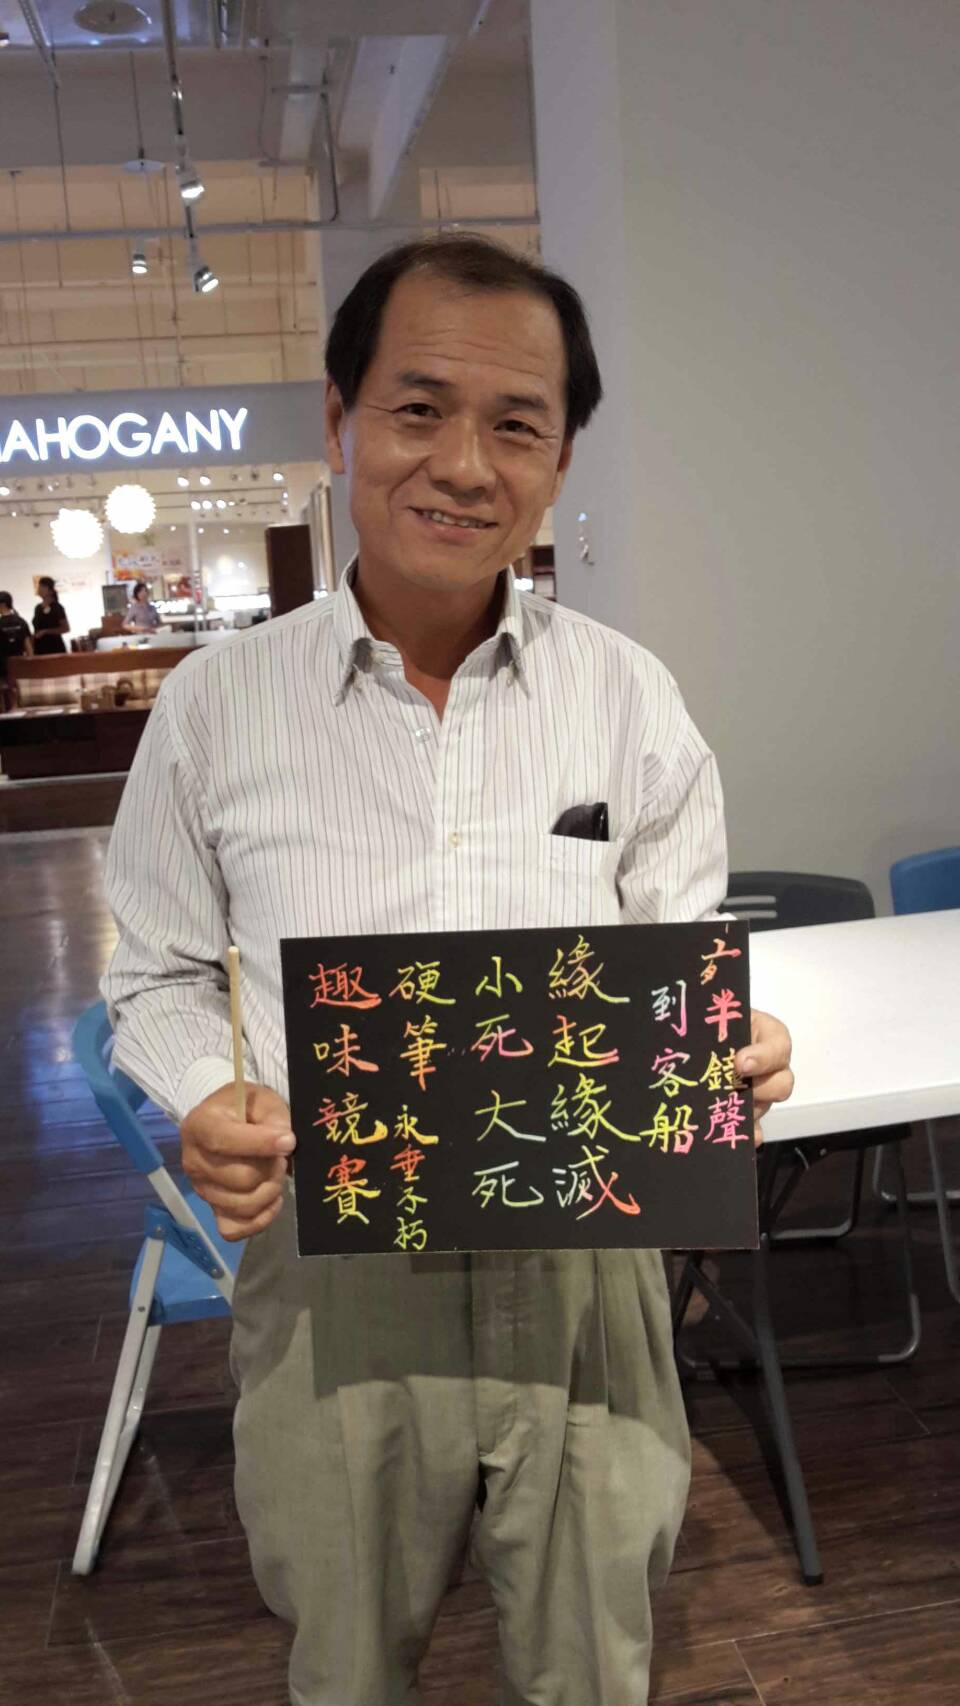 MAHOGANY
夜半鐘聲
到客船
緣起緣滅
小死大死
硬筆 永垂不朽
趣味競賽